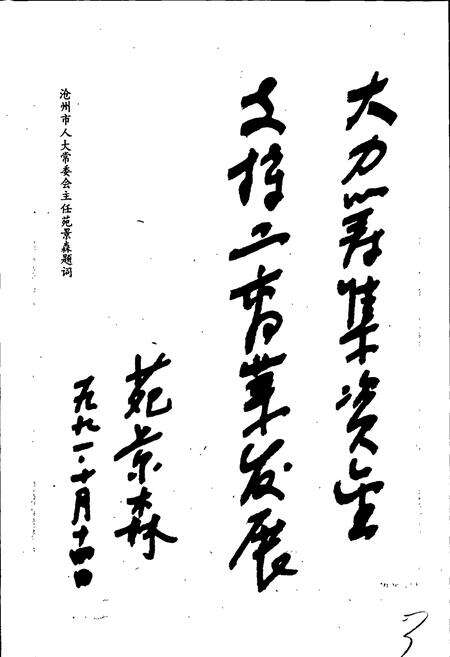 大力筹集资金
支持工商业发展
苑景森
一九九一、十月十四日
沧州市人大常委会主任苑景森题词